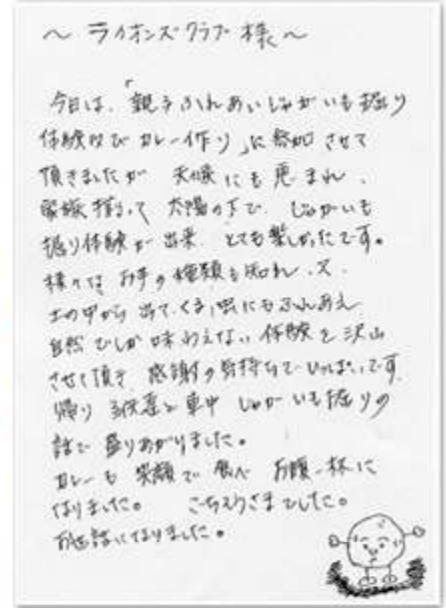 ～ ライオンズクラブ 様 ～
今日は、「親子ふれあいじゃがいも掘り
体験及び カレー作り」に参加させて
頂きましたが 天候にも恵まれ、
家族揃って 太陽の下で、じゃがいも
掘り体験が出来、とても楽しかったです。
様々な お芋の種類も知れ、又、
土の中から 出てくる虫にもふれあえ
自然でしか味わえない 体験を沢山
させて頂き 感謝の気持ちでいっぱいです。
帰り 子供達と車中 じゃがいも掘りの
話で 盛りあがりました。
カレーも 笑顔で 食べ お腹一杯に
なりました。 ごちそうさまでした。
お世話になりました。